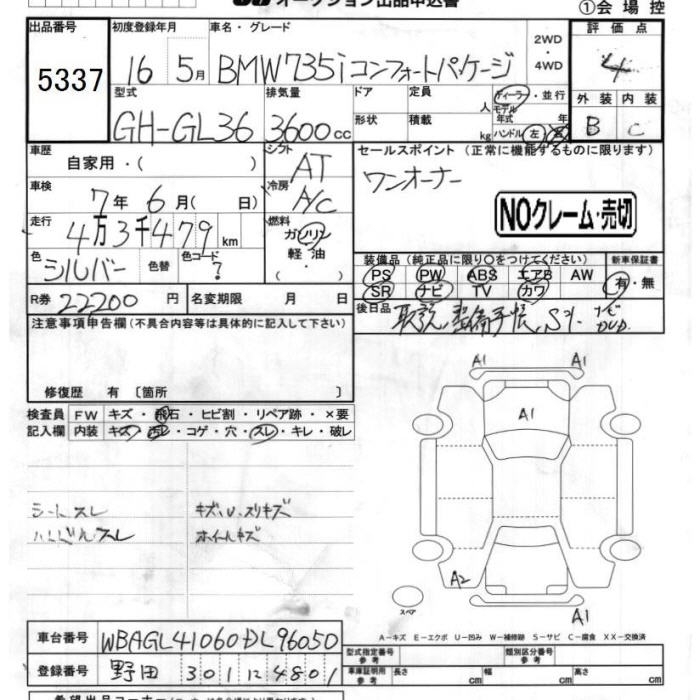 オークション出品申込書
①会場控
出品番号 初度登録年月 車名・グレード 2WD ・ 4WD 評価点
5337 16 5月 BMW735i コンフォートパッケージ 4
型式 排気量 ドア 定員 人 ディーラー・並行 外装 内装
GH-GL36 3600cc 形状 積載 kg モデル年式 年 ハンドル 左 右 B C
車歴 自家用・( ) シフト AT セールスポイント (正常に機能するものに限ります)
車検 7年 6月( 日) 冷房 A/C ワンオーナー
NOクレーム・売切
走行 4万3千479km 燃料 ガソリン 軽油 ・
色 シルバー 色替 色コード ? 装備品 (純正品に限り○をつけてください) 新車保証書
PS PW ABS エアB AW 有・無
SR ナビ TV カワ
R券 22200円 名変期限 月 日 後日品 取説、整備手帳、S%、ナビDVD
注意事項申告欄(不具合内容等は具体的に記入して下さい)
修復歴 有 〔箇所 〕
検査員 FW キズ・飛石・ヒビ割・リペア跡・×要
記入欄 内装 キズ・汚レ・コゲ・穴・スレ・キレ・破レ
シートスレ キズ、U、スリキズ
ハンドルスレ ホイールキズ
A1 A1
A1
A2 A1
スペア
A-キズ E-エクボ U-凹み W-補修跡 S-サビ C-腐食 XX-交換済
車台番号 WBAGL41060DL96050
型式指定番号 参考 類別区分番号 参考
登録番号 野田 301 124801
車庫証明用 参考 長さ cm 幅 cm 高さ cm